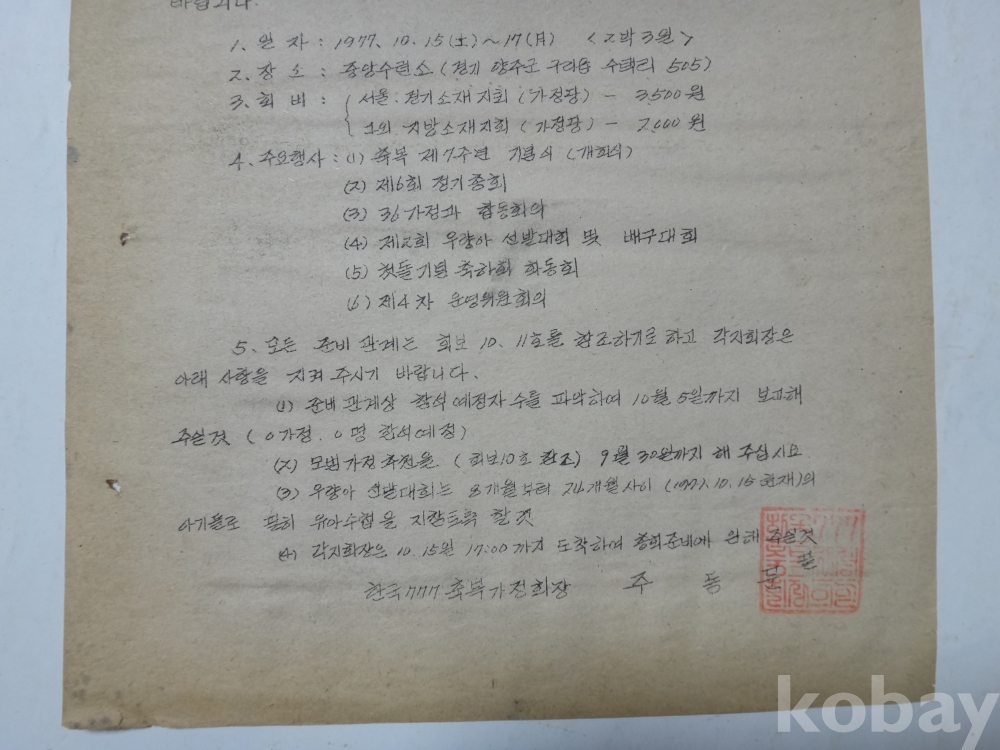 바랍니다.
1. 일 자 : 1977. 10. 15(土)~17(月) <2박3일>
2. 장 소 : 중앙수련소 (경기 양주군 구리읍 수택리 505)
3. 회 비 : 서울·경기소재 지회 (가정당) - 3,500원
그외 지방소재지회 (가정당) - 2,000원
4. 주요행사 : (1) 축복 제7주년 기념식 (개회식)
(2) 제6회 정기총회
(3) 36가정과 합동회의
(4) 제2회 우량아 선발대회 및 배구대회
(5) 첫돌기념 축하회 화동회
(6) 제4차 운영위원회의
5. 모든 준비 관계는 회보 10. 11호를 참조하기로 하고 각지회장은
아래 사항을 지켜 주시기 바랍니다.
(1) 준비관계상 참석예정자 수를 파악하여 10월 5일까지 보고해
주실것 (0가정. 0명 참석예정)
(2) 모범가정 추천을 (회보10호 참조) 9월 30일까지 해 주십시요
(3) 우량아 선발대회는 8개월부터 24개월사이 (1977.10.15현재)의
아기들로 필히 유아수첩을 지참토록 할것
(4) 각지회장은 10.15일 17:00까지 도착하여 총회준비에 임해 주실것
한국777축복가정회장 주 동 문
kobay